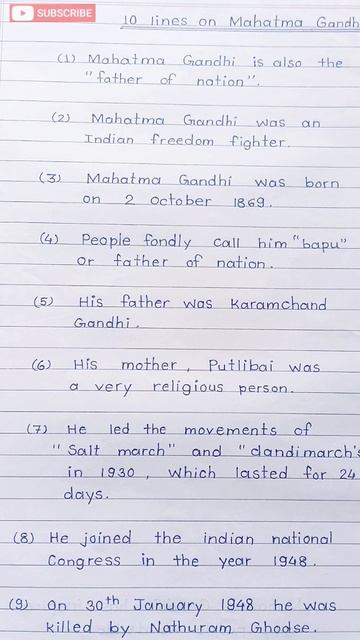 SUBSCRIBE
10 lines on Mahatma Gandh
(1) Mahatma Gandhi is also the
"father of nation".
(2) Mahatma Gandhi was an
Indian freedom fighter.
(3) Mahatma Gandhi was born
on 2 october 1869.
(4) People fondly call him "bapu"
or father of nation.
(5) His father was Karamchand
Gandhi.
(6) His mother, Putlibai was
a very religious person.
(7) He led the movements of
"Salt march" and "dandimarch's
in 1930, which lasted for 24
days.
(8) He joined the indian national
Congress in the year 1948.
(9) On 30th January 1948 he was
killed by Nathuram Ghodse.